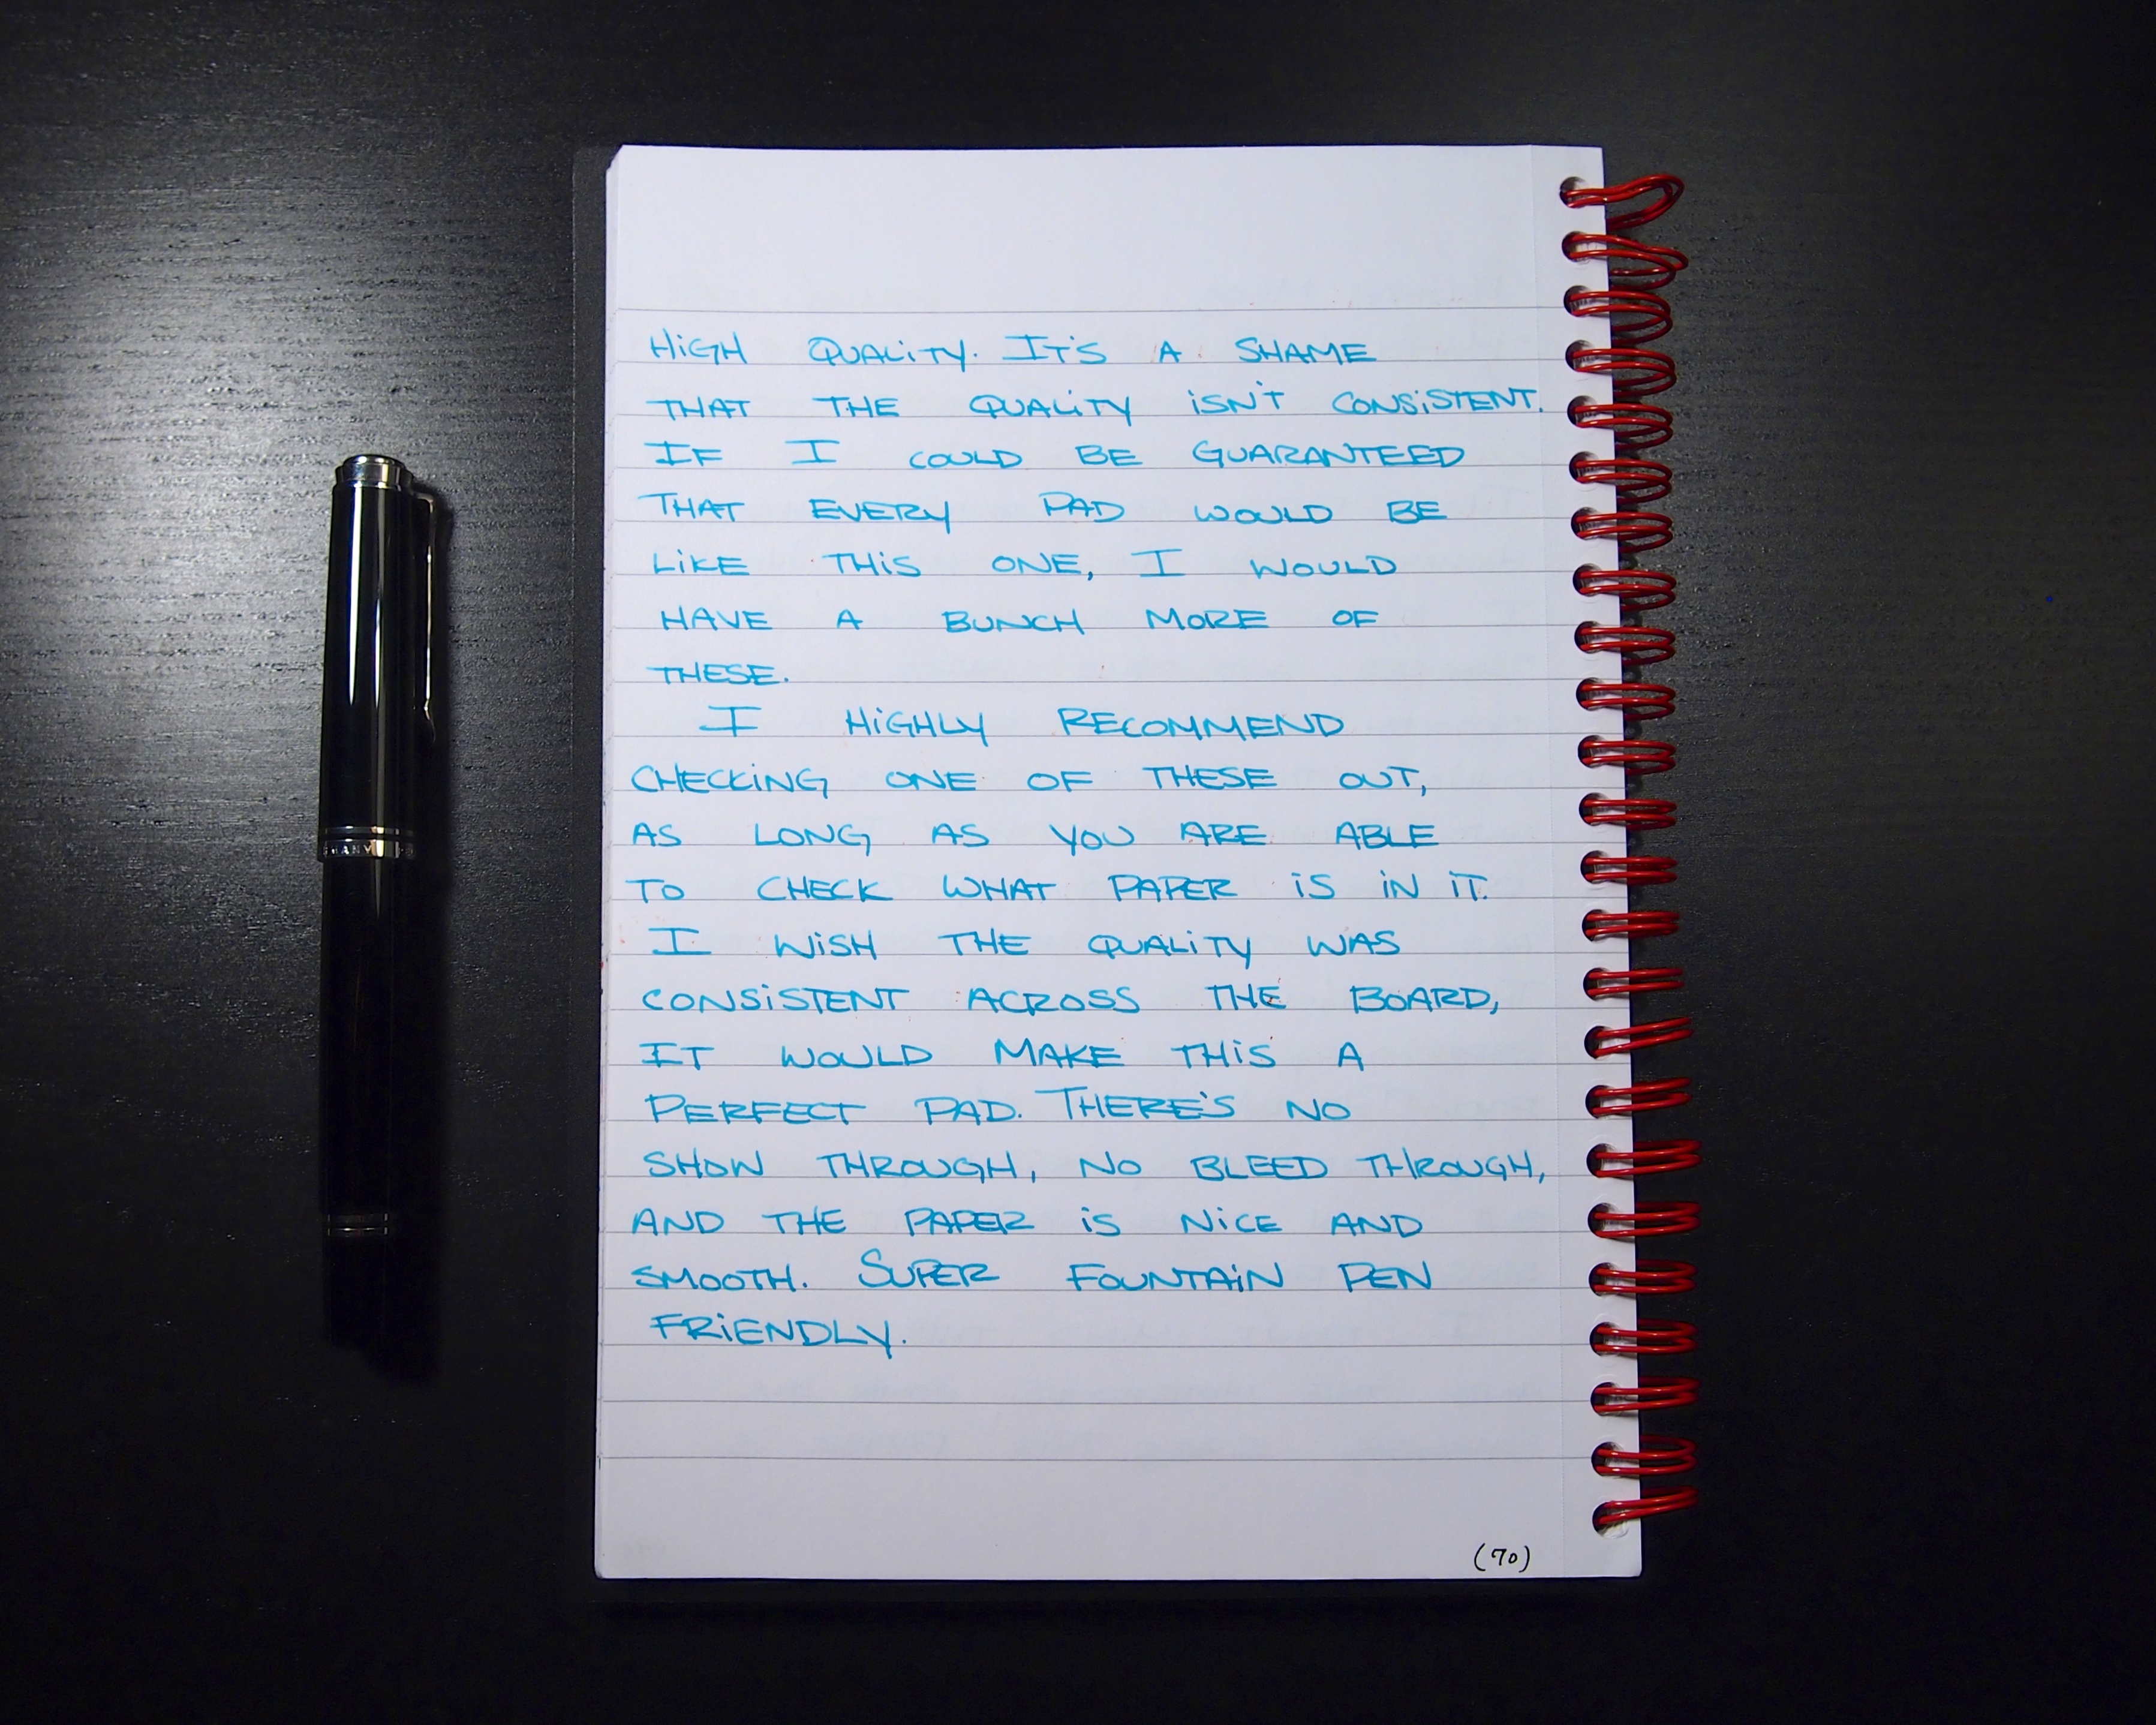 HiGH QUALiTY. IT'S A SHAME
THAT THE QUALiTY iSN'T CONSiSTENT.
IF I COULD BE GUARANTEED
THAT EVERY PAD WOULD BE
LiKE THiS ONE, I WOULD
HAVE A BUNCH MORE OF
THESE.
I HiGHLY RECOMMEND
CHECKiNG ONE OF THESE OUT,
AS LONG AS YOU ARE ABLE
TO CHECK WHAT PAPER iS iN iT.
I WiSH THE QUALiTY WAS
CONSiSTENT ACROSS THE BOARD,
IT WOULD MAKE THiS A
PERFECT PAD. THERE'S NO
SHOW THROUGH, NO BLEED THROUGH,
AND THE PAPER iS NiCE AND
SMOOTH. SUPER FOUNTAiN PEN
FRiENDLY.
(70)